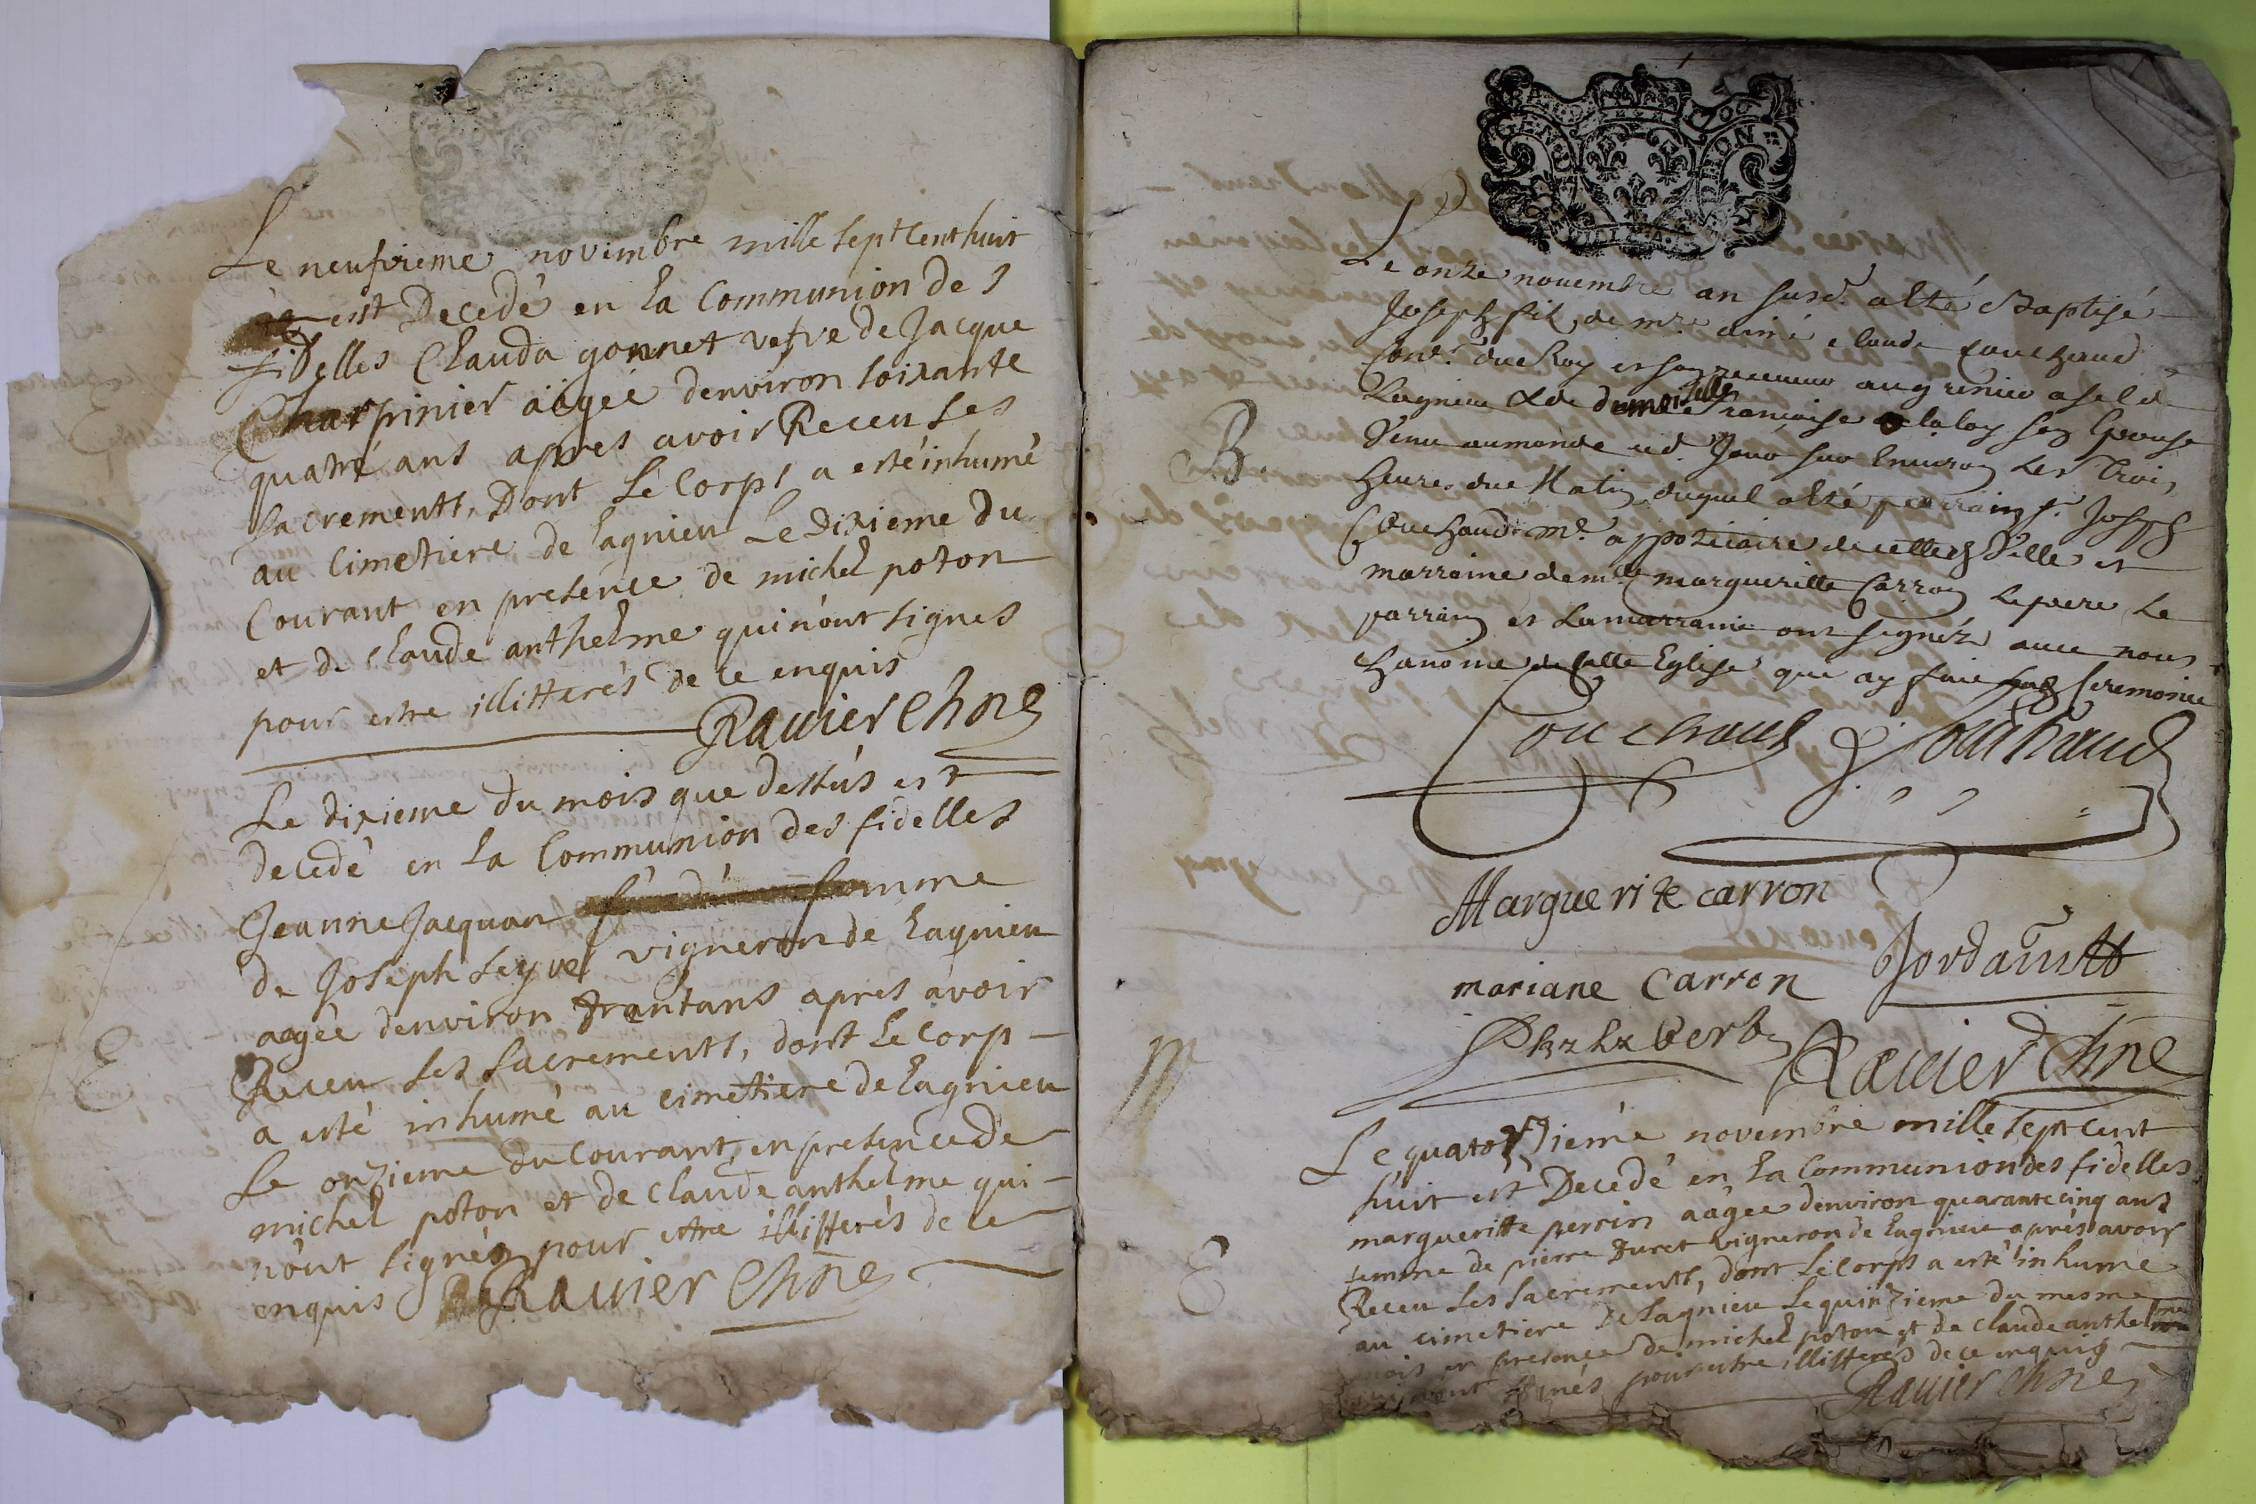 Le neufvieme novembre mille sept cent huit
est Decedé en la Communion de s
fidelles Clauda gonnet vefve de Jacque
Charpinier aagée denviron soixante
quatre ans apres avoir Receu ses
sacrements, Dont Le Corps a esté inhumé
au Cimetiere de Lagnieu Le Dixieme Du
Courant en presence de michel poton
et de Claude anthelme qui n'ont signes
pour estre illitterés de ce enquis
Ravier Chne
Le dixieme du mois que dessus est
decedé en La Communion des fidelles
E
Jeanne Jacquan femme
de Joseph Leyvel vigneron de Lagnieu
aagée denviron trantans apres avoir
Receu Les Sacrements, dont Le Corp
a esté inhumé au cimetiere de Lagnieu
Le onzieme du Courant, en presence de
michel poton et de Claude anthelme qui
n'ont signés pour estre illitterés de ce
enquis Ravier Chne
Le onze novembre an susd. a esté Baptisé
Joseph fil de mre aimé claude couchaud
Conr. du Roy et son receveur au grenier a sel de
Lagnieu & de demoiselle Françoise de la loy son Epouse
B.
Venu au monde ced. Jour sur Environ Les Trois
heures du Matin duquel a esté parrain sr. Joseph
Couchaud mre appoticaire de cette Ville et
marraine demlle margueritte Carron Le pere Le
parrain et La marraine ont signéz avec nous
Chanoine de cette Eglise que ay fait Les Ceremonie
Couchaud J. Couchaud
Marguerite carron
mariane Carron
Ravier Chne
m
Le quatorzieme novembre mille sept cent
huit est Decedé en La Communion des fidelles
margueritte perrin aagée denviron quarante cinq ans
femme de pierre Duret vigneron de Lagnieu aprés avoir
E
Receu Les Sacrements, dont Le Corps a esté inhumé
au cimetiere de Lagnieu Le quinzieme du mesme
mois en presence de michel poton et de Claude anthelme
qui n'ont signés pour estre illitterés de ce enquis
Ravier Chne